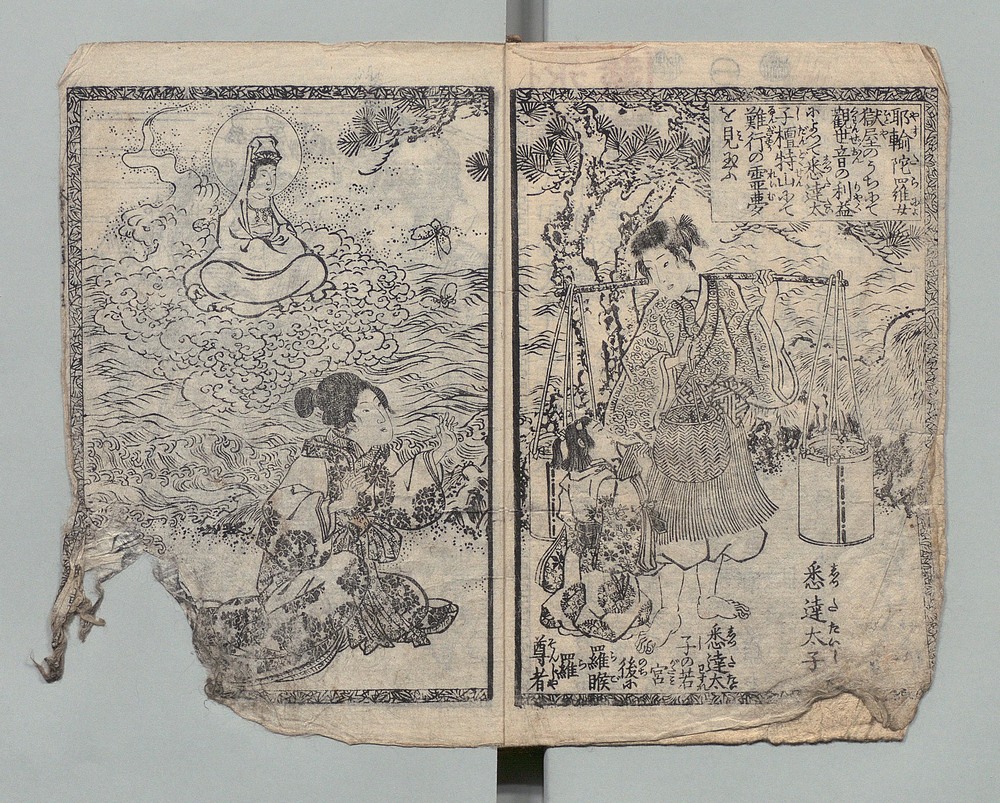 耶輸陀羅女
獄屋のうちにて
觀世音の利益
によつて悉達太
子檀特山にて
難行の霊夢
を見る
悉達太子
悉達太
子の若
宮
後に
羅睺
羅
尊者